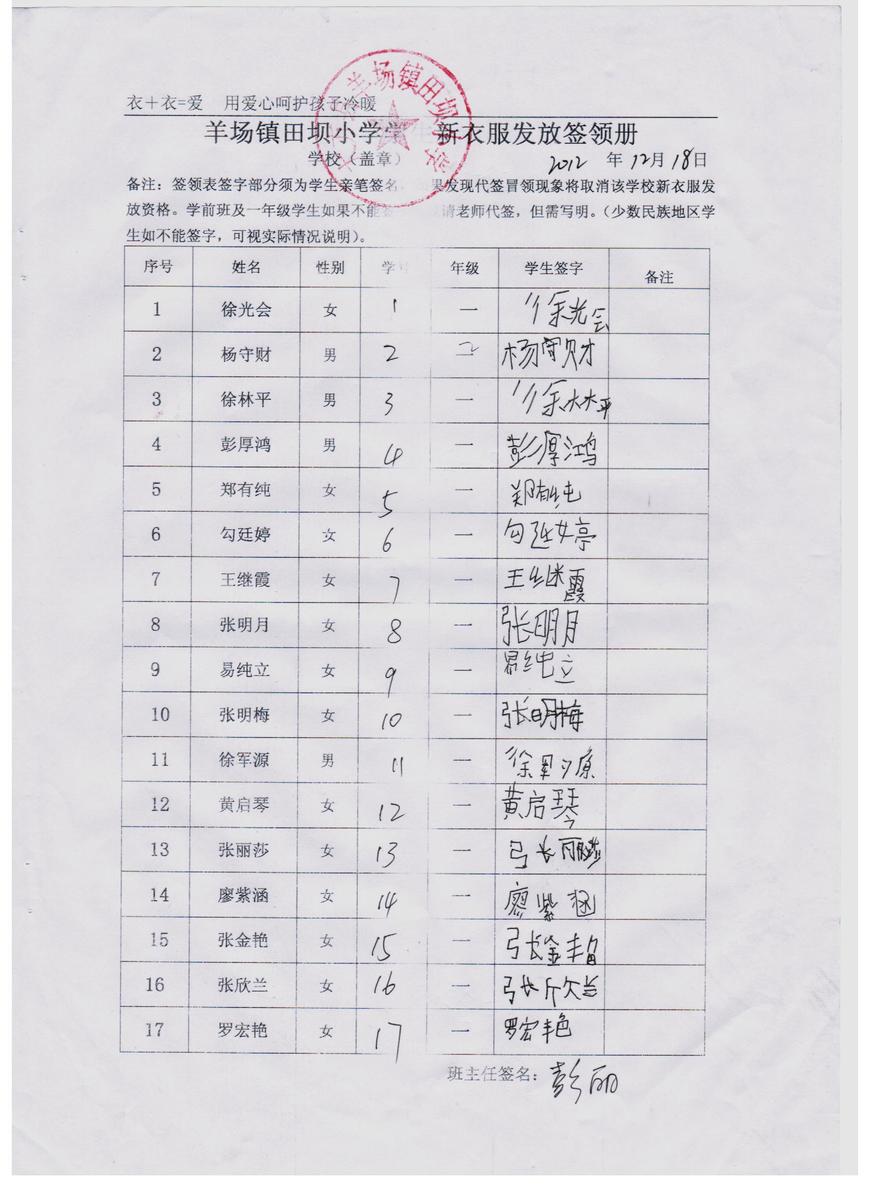 衣+衣=爱 用爱心呵护孩子冷暖
羊场镇田坝小学 新衣服发放签领册
学校(盖章) 2012 年 12月 18日
备注:签领表签字部分须为学生亲笔签名, 果发现代签冒领现象将取消该学校新衣服发
放资格。学前班及一年级学生如果不能 请老师代签,但需写明。(少数民族地区学
生如不能签字,可视实际情况说明)。
序号 姓名 性别 学号 年级 学生签字 备注
1 徐光会 女 1 一 徐光会
2 杨守财 男 2 一 杨守财
3 徐林平 男 3 一 徐林平
4 彭厚鸿 男 4 一 彭厚鸿
5 郑有纯 女 5 一 郑有纯
6 勾廷婷 女 6 一 勾廷婷
7 王继霞 女 7 一 王继霞
8 张明月 女 8 一 张明月
9 易纯立 女 9 一 易纯立
10 张明梅 女 10 一 张明梅
11 徐军源 男 11 一 徐军源
12 黄启琴 女 12 一 黄启琴
13 张丽莎 女 13 一 张丽莎
14 廖紫涵 女 14 一 廖紫涵
15 张金艳 女 15 一 张金艳
16 张欣兰 女 16 一 张欣兰
17 罗宏艳 女 17 一 罗宏艳
班主任签名:彭丽